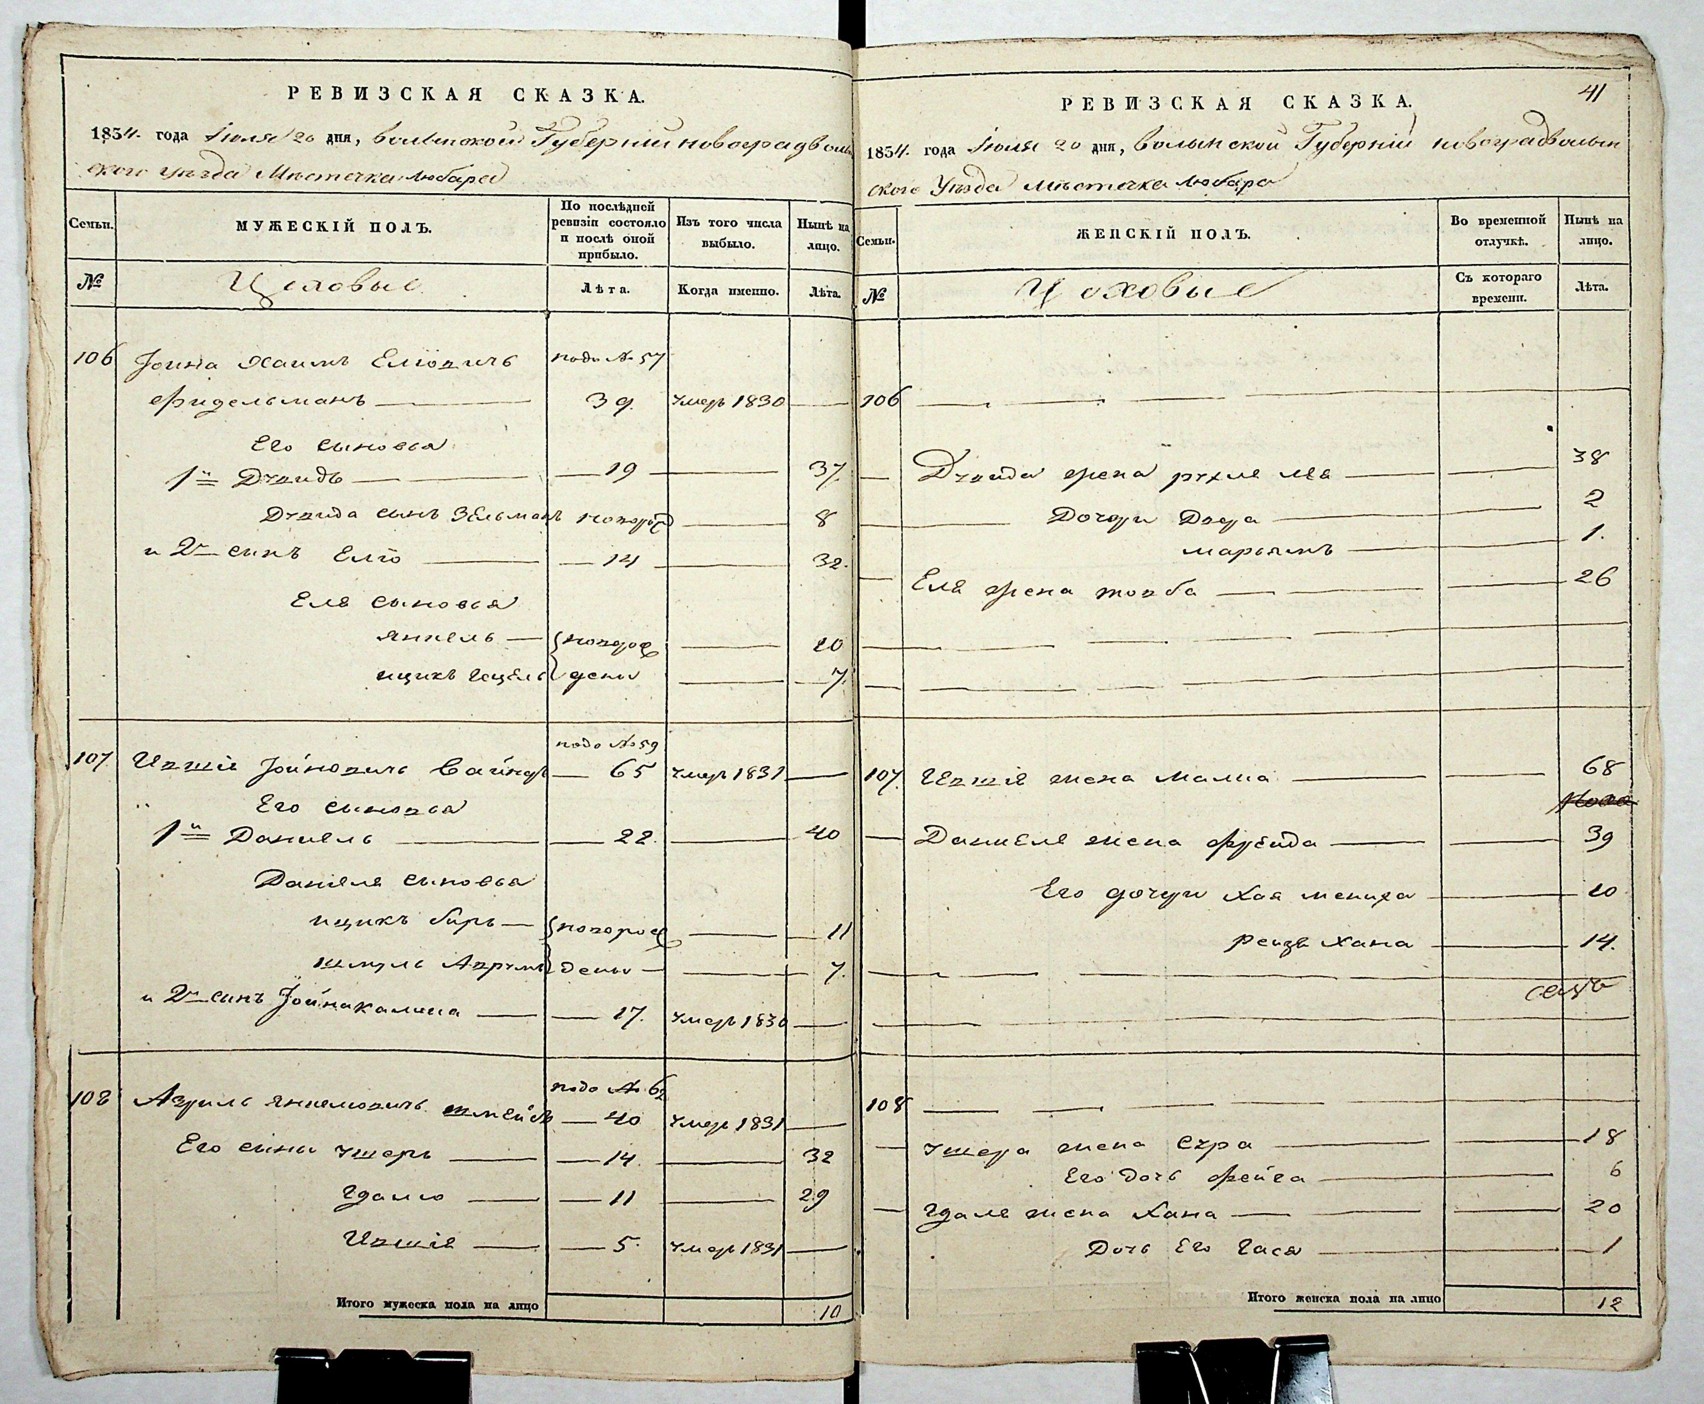 РЕВИЗСКАЯ СКАЗКА.
1834. года Іюля 20 дня, Волынской Губерніи новоградволын
ского уѣзда Мѣстечка Любара
Семьи.
МУЖЕСКІЙ ПОЛЪ.
По послѣдней ревизіи состояло и послѣ оной прибыло.
Изъ того числа выбыло.
Нынѣ на лицо.
№
Цеховые
Лѣта.
Когда именно.
Лѣта.
106 Іоина Хаимъ Еліовичь подъ № 57
Фидельманъ 39. умеръ 1830
Его сыновья
1й Дувидъ 19 37.
Дувида сынъ Зельманъ новорож 8
и 2й сынъ Еліо 14 32.
Еля сыновья
Янкель новорож 10
ицикъ Гецель дены 7.
107 Ившія Іойновичь Вайндр подъ № 59 65 умер 1831
Его сыновья
1й Даниель 22. 40
Даніеля сыновья
ицикъ беръ новорож 11
шмуль Аврумъ дены 7.
и 2й сынъ Іойнакалмна 17. умеръ 1830
108 Азриль Янкелювичь подъ № 62 40 умер 1831
Его сыны ушеръ 14. 32
Гдалю 11 29
Ившія 5. умеръ 1831
Итого мужеска пола на лицо 10
41
РЕВИЗСКАЯ СКАЗКА.
1834. года Іюля 20 дня, Волынской Губерніи новоградволын
ского Уѣзда мѣстечка Любара
Семьи.
ЖЕНСКІЙ ПОЛЪ.
Во временной отлучкѣ.
Нынѣ на лицо.
№
Цеховые
Съ котораго времени.
Лѣта.
106
Дувида жена рухля лея 38
Дочери Двера 2
марьямъ 1.
Еля жена товба 26
107. Ившія жена малка 68
Даниеля жена фрейда 39
Его дочери Хая мениха 10
рейзя Хана 14.
108
ушера жена сура 18
Его дочь фейга 6
Гдаля жена Хана 20
Дочь Его Гася 1
Итого женска пола на лицо 12